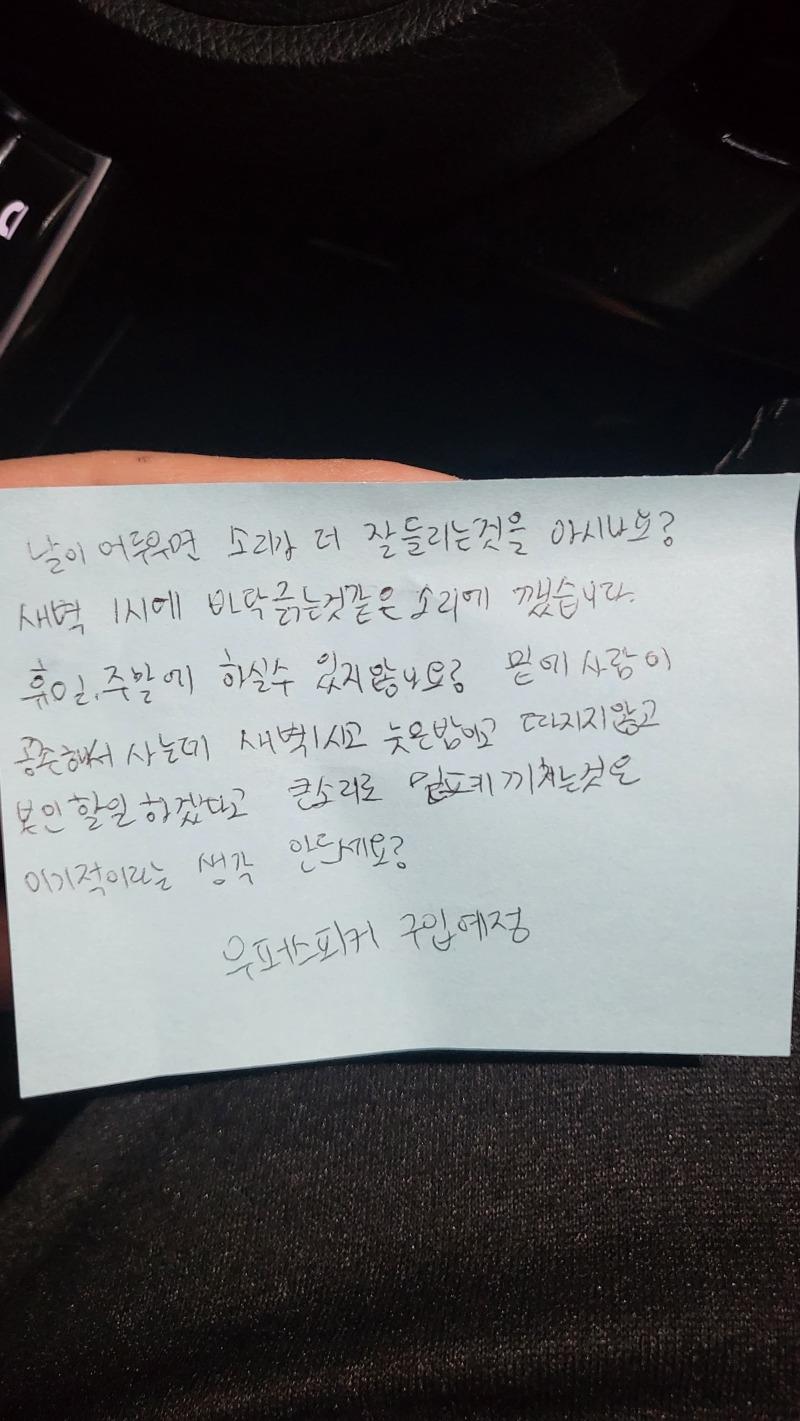 날이 어두우면 소리가 더 잘들리는것을 아시나요?
새벽 1시에 바닥긁는것같은 소리에 깼습니다.
휴일,주말에 하실수 있지않나요? 밑에 사람이
공존해서 사는데 새벽1시고 늦은밤이고 따지지않고
본인할일 하겠다고 큰소리로 민폐끼치는것은
이기적이라는 생각 안드세요?
우퍼스피커 구입예정